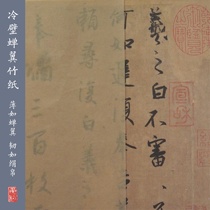 羲之白不審
何如遲復奉
賴尋復白羲
橘三百枚
冷壁蝉翼竹纸
薄如蝉翼 韧如绢帛